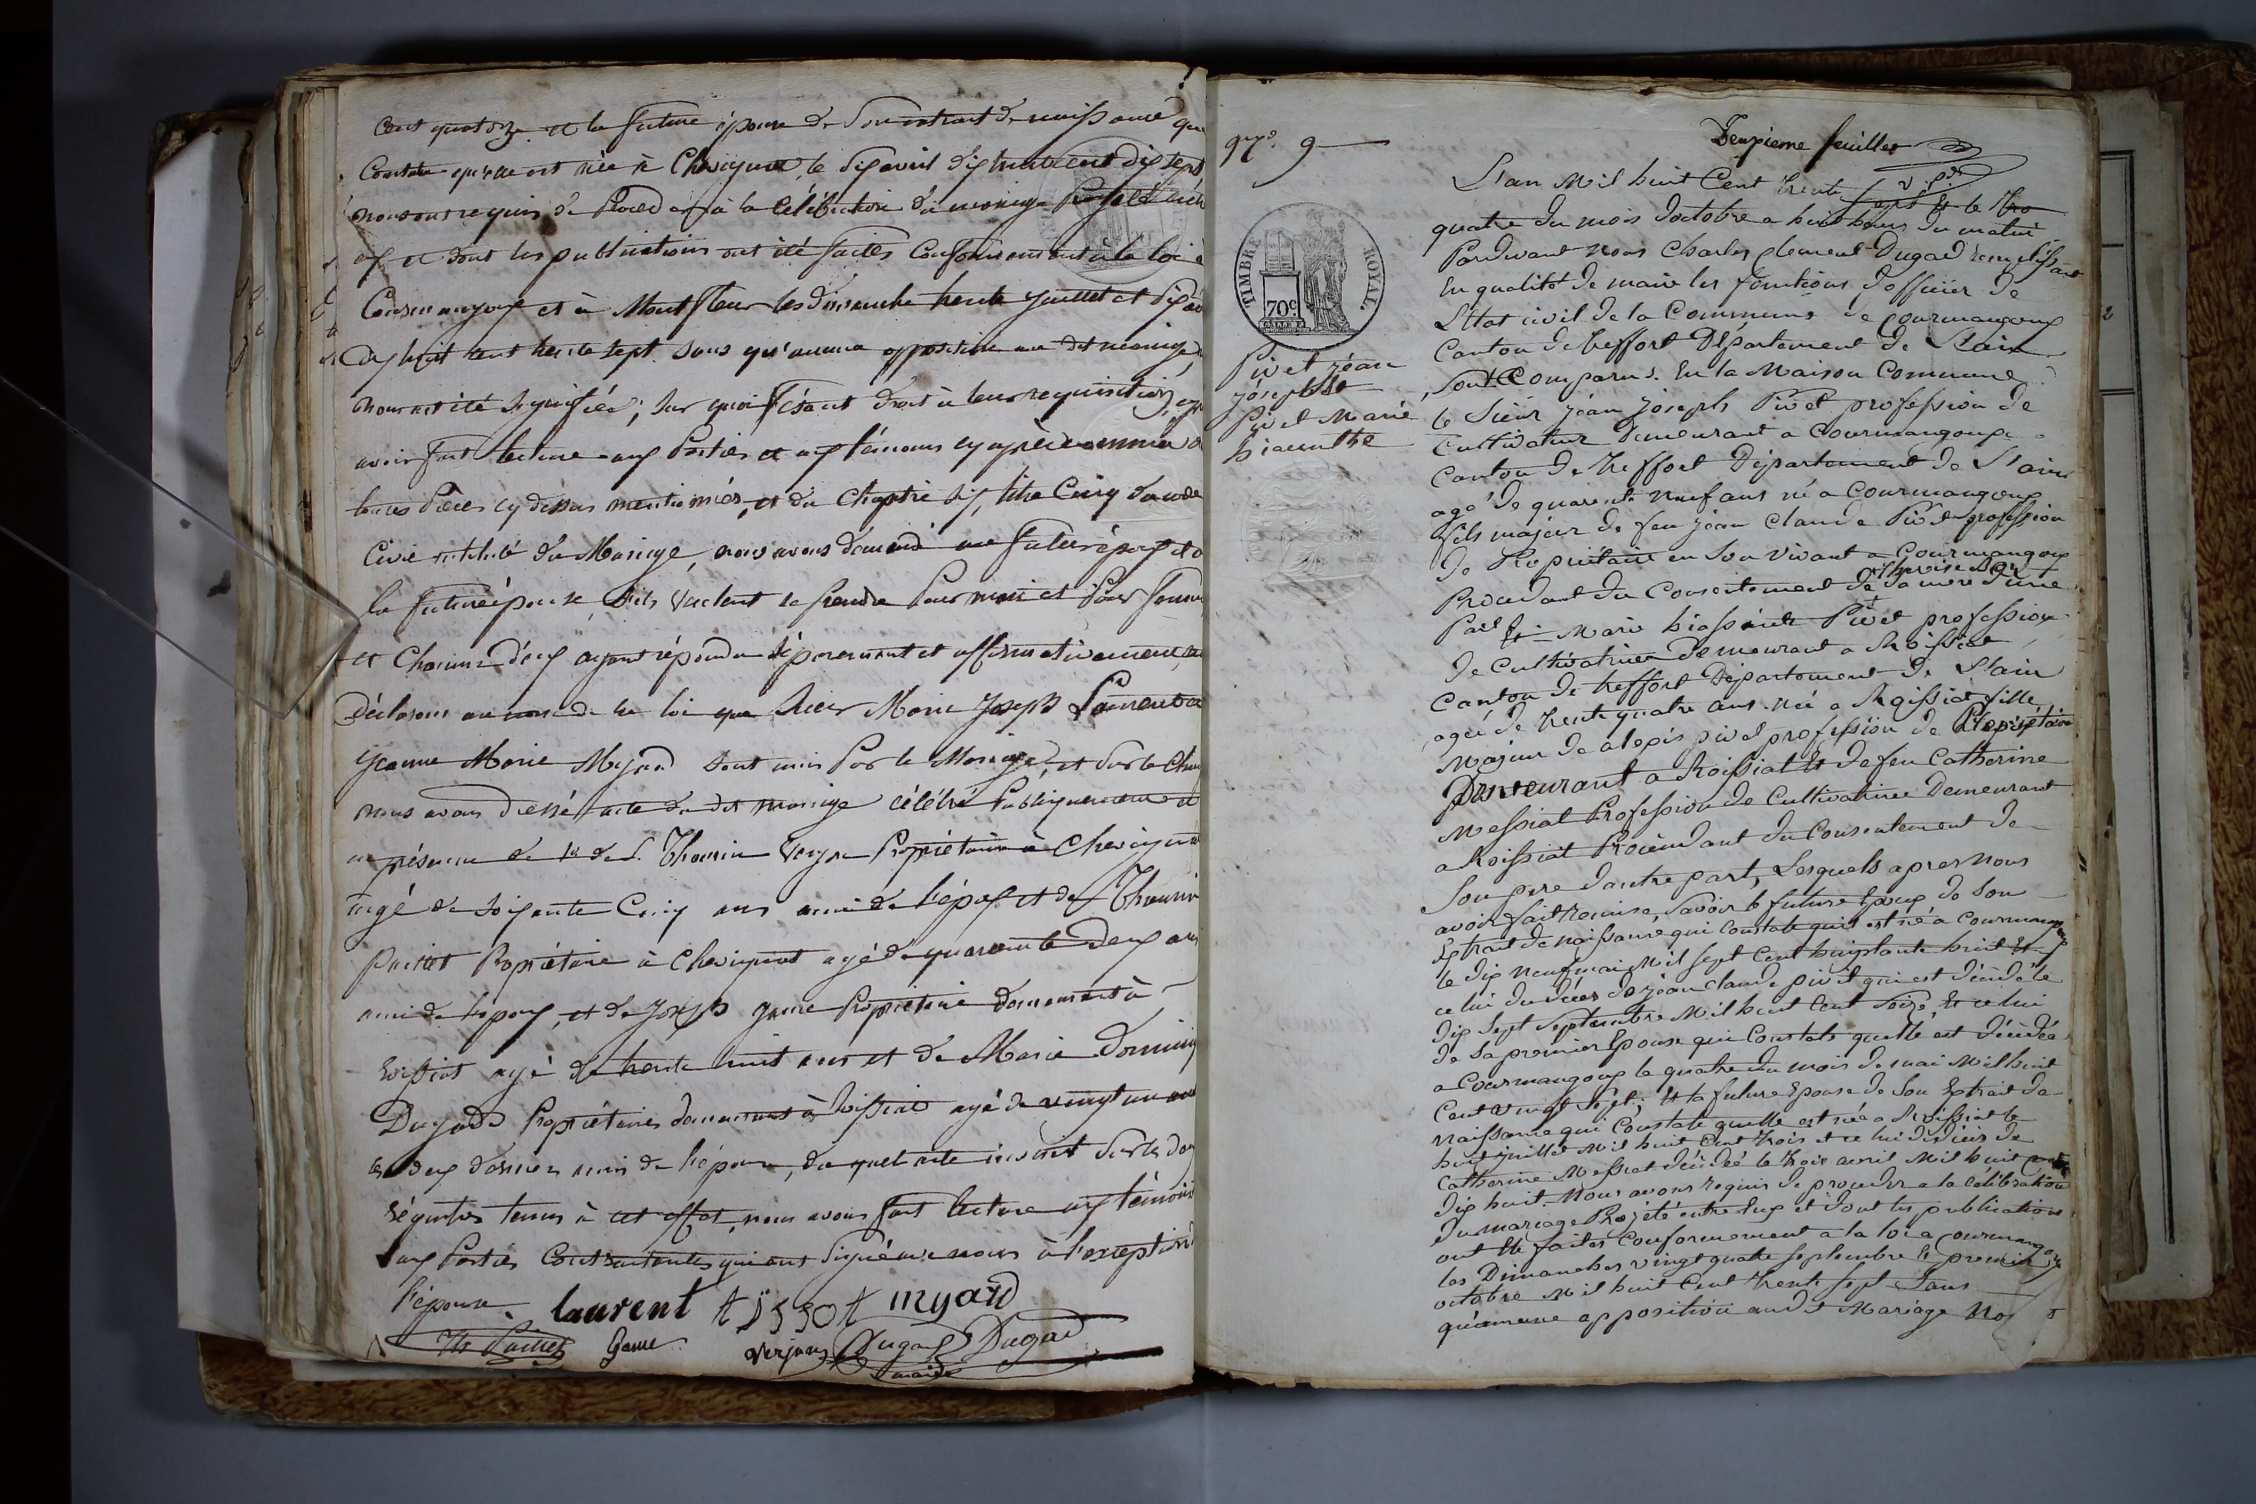 Cent quatorze et la future épouse de Son extrait de naissance qui
Constate qu'elle est née à Chevignat le dix avril dix huit cent dix sept
nous ont requis de Procéder à la Célébration du mariage Projeté entre
eux et dont les publications ont été faites Conformément à la loi à
Courmangoux et à Montfleur les dimanche trente Juillet et Six août
dix huit cent trente sept. Sans qu'aucune opposition au dit mariage
nous ait été Signifiée; Sur quoi fésant droit à leur requisition,
avoir fait lecture aux Parties et aux témoins cy après nommés de
toutes Pièces cy dessus mentionnées, et du Chapitre Six, titre Cinq du code
Civil intitulé du Mariage, nous avons demandé au futur époux et à
la future épouse S'ils veulent se prendre Pour mari et Pour femme
et Chacun d'eux ayant répondu Séparément et affirmativement,
Déclarons au nom de la loi que Marie Joseph Laurent et
Jeanne Marie Myard Sont unis Par le Mariage, et Sur le Champ
nous avons dressé acte du dit mariage célébré Publiquement
en présence de Thomin Propriétaire à Chevignat
agé de Soixante Cinq ans ami de l'époux et de Thomin
Paillet Propriétaire à Chevignat agé de quarante Deux ans
ami de l'époux, et de Joseph Propriétaire demeurant à
Roissiat agé de trente huit ans et de Marie Dominiq
Dugad Propriétaires demeurant à Roissiat agé de vingt un ans
les deux derniers amis de l'épouse, du quel acte inscrit Sur les deux
régistres tenus à cet effet, nous avons fait lecture aux témoins
aux Parties Contractantes qui ont Signé avec nous à l'exception
l'épouse. laurent myard
Th Paillet Dugad Dugad
maire
Deuxieme feuillet
N.° 9
L'an Mil huit Cent trente Sept Et le
quatre du mois d'octobre a huit heures du matin
Pardevant Nous Charles Clement Dugad remplissant
En qualité de maire les fonctions d'officier de
L'Etat civil de la Commune de Courmangoux
Canton de treffort Département de L'ain
Sont Comparus. En la Maison Commune
le Sieur Jean Joseph Pivet profession de
Cultivateur Demeurant a Courmangoux
Canton de Treffort Département de L'ain
agé de quarante Neuf ans né a Courmangoux
fils majeur de feu Jean Claude Pivet profession
de Propriétaire en Son Vivant a Courmangoux
Procedant du Consentement de Sa mere d'une
Part Et Marie hiassinte Pivet profession
de Cultivatrice Demeurant a Roissiat
Canton de treffort Département de L'ain
agée de trente quatre ans née a Roissiat fille
Majeur de alexis pivet profession de Propriétaire
Demeurant a Roissiat Et de feu Catherine
Messiat Profession de Cultivatrice Demeurant
a Roissiat Procédant du Consentement de
Son pere d'autre part, Lesquels apres Nous
avoir fait remise, Savoir le future Epoux de Son
Extrait de Naissance qui Constate quil est né a Courmangoux
le dix neuf mai Mil Sept Cent huitante huit Et
celui du décès de Jean Claude pivet qui est décédé le
dix Sept Septembre Mil huit Cent Seize, Et celui
de Sa premier Epouse qui Constate quelle est décédée
a Courmangoux le quatre du mois de mai Mil huit
Cent vingt Sept; Et la future Epouse de Son Extrait de
Naissance qui Constate quelle est née a Roissiat le
huit Juillet Mil huit Cent trois et celui du décès de
Catherine Messiat décédée le trois avril Mil huit cent
dix huit. Nous avons requis de proceder a la célébration
du mariage Projeté entre Eux et dont les publications
ont Eté faites Conformement a la loi a Courmangoux
les Dimanches vingt quatre septembre Et premier
octobre Mil huit Cent trente Sept Sans
qu'aucune opposition audit Mariage Nos
TIMBRE ROYAL
70c
Pivet Jean
Joseph Et
Pivet Marie
hiacinthe